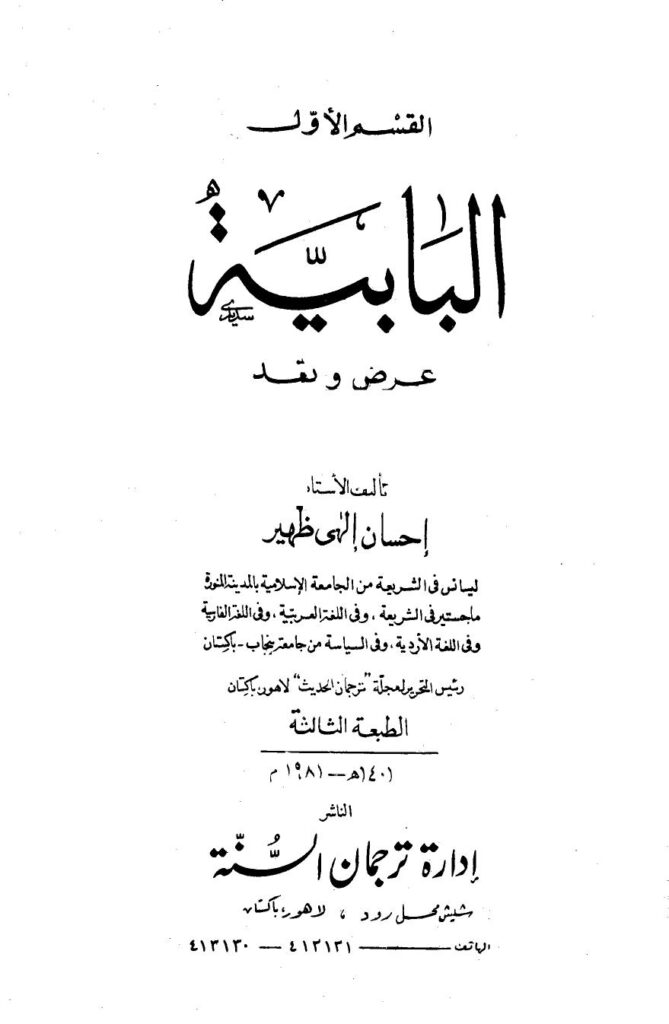 القسم الأول
البابية
عرض ونقد
تأليف الأستاذ
إحسان إلهى ظهير
ليسانس فى الشريعة من الجامعة الإسلامية بالمدينة المنورة
ماجستير فى الشريعة ، وفى اللغة العربية ، وفى اللغة الفارسية
وفى اللغة الأردية ، وفى السياسة من جامعة بنجاب - باكستان
رئيس التحرير لمجلة "ترجمان الحديث" لاهور باكستان
الطبعة الثالثة
١٤٠١ هـ - ١٩٨١ م
الناشر
إدارة ترجمان السنة
شيش محل رود ، لاهور، باكستان
الهاتف ـــــ ٤١٣١٣١ — ٤١٣١٣٠